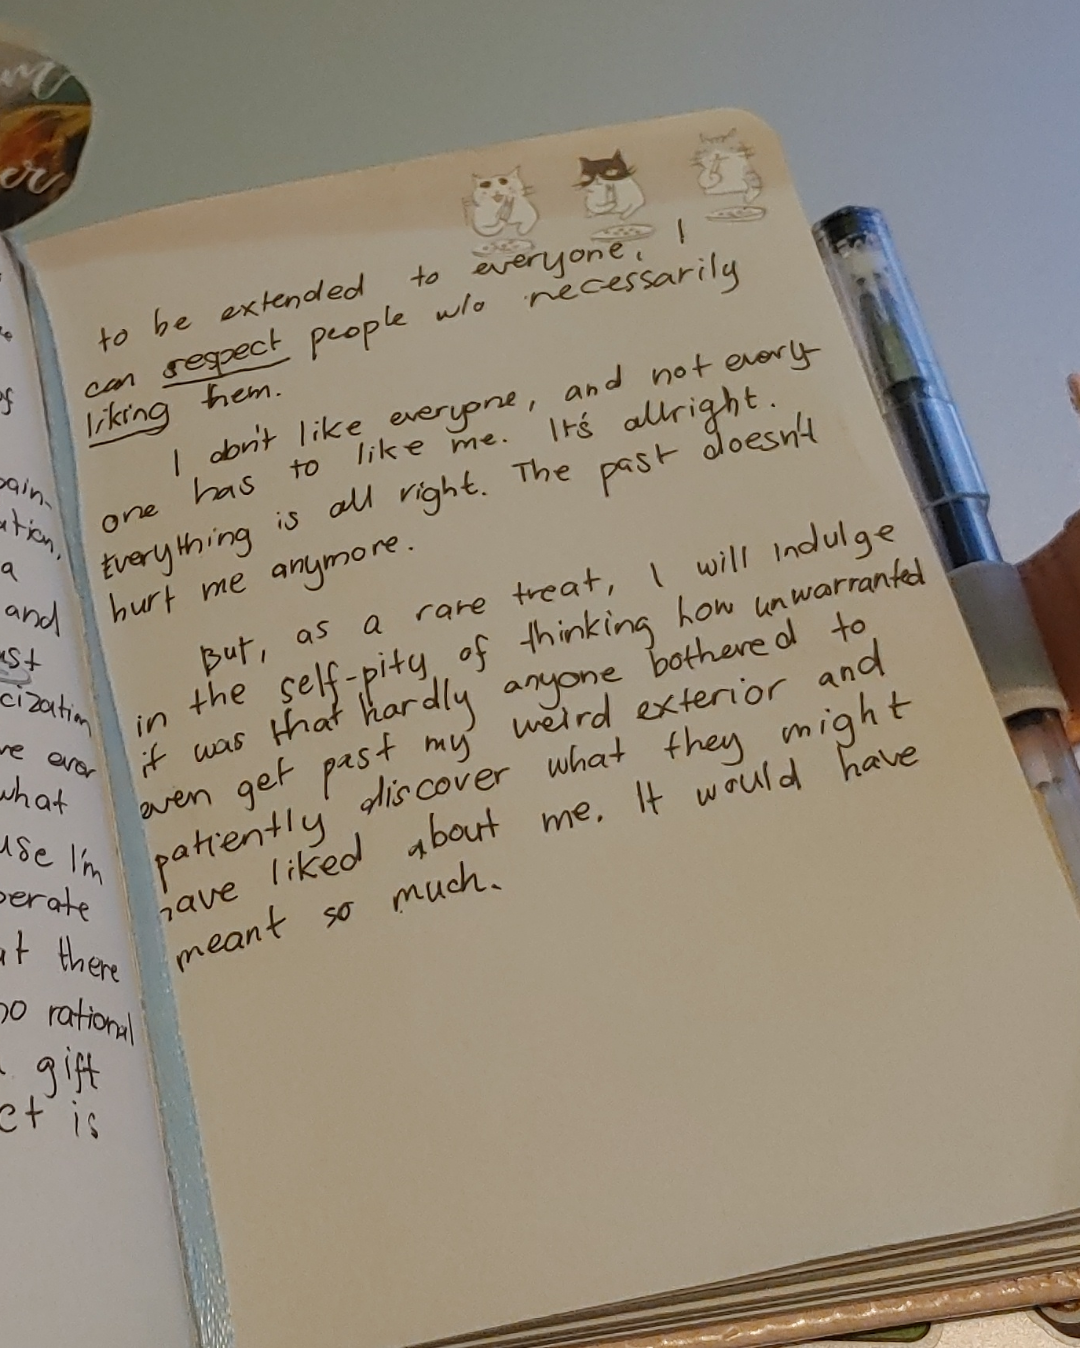 er
pain-
a
and
cization
ever
what
I'm
there
rational
gift
is
to be extended to everyone, I
can respect people w/o necessarily
liking them.
I don't like everyone, and not every-
one has to like me. It's allright.
Everything is all right. The past doesn't
hurt me anymore.
But, as a rare treat, I will indulge
in the self-pity of thinking how unwarranted
it was that hardly anyone bothered to
even get past my weird exterior and
patiently discover what they might
have liked about me. It would have
meant so much.